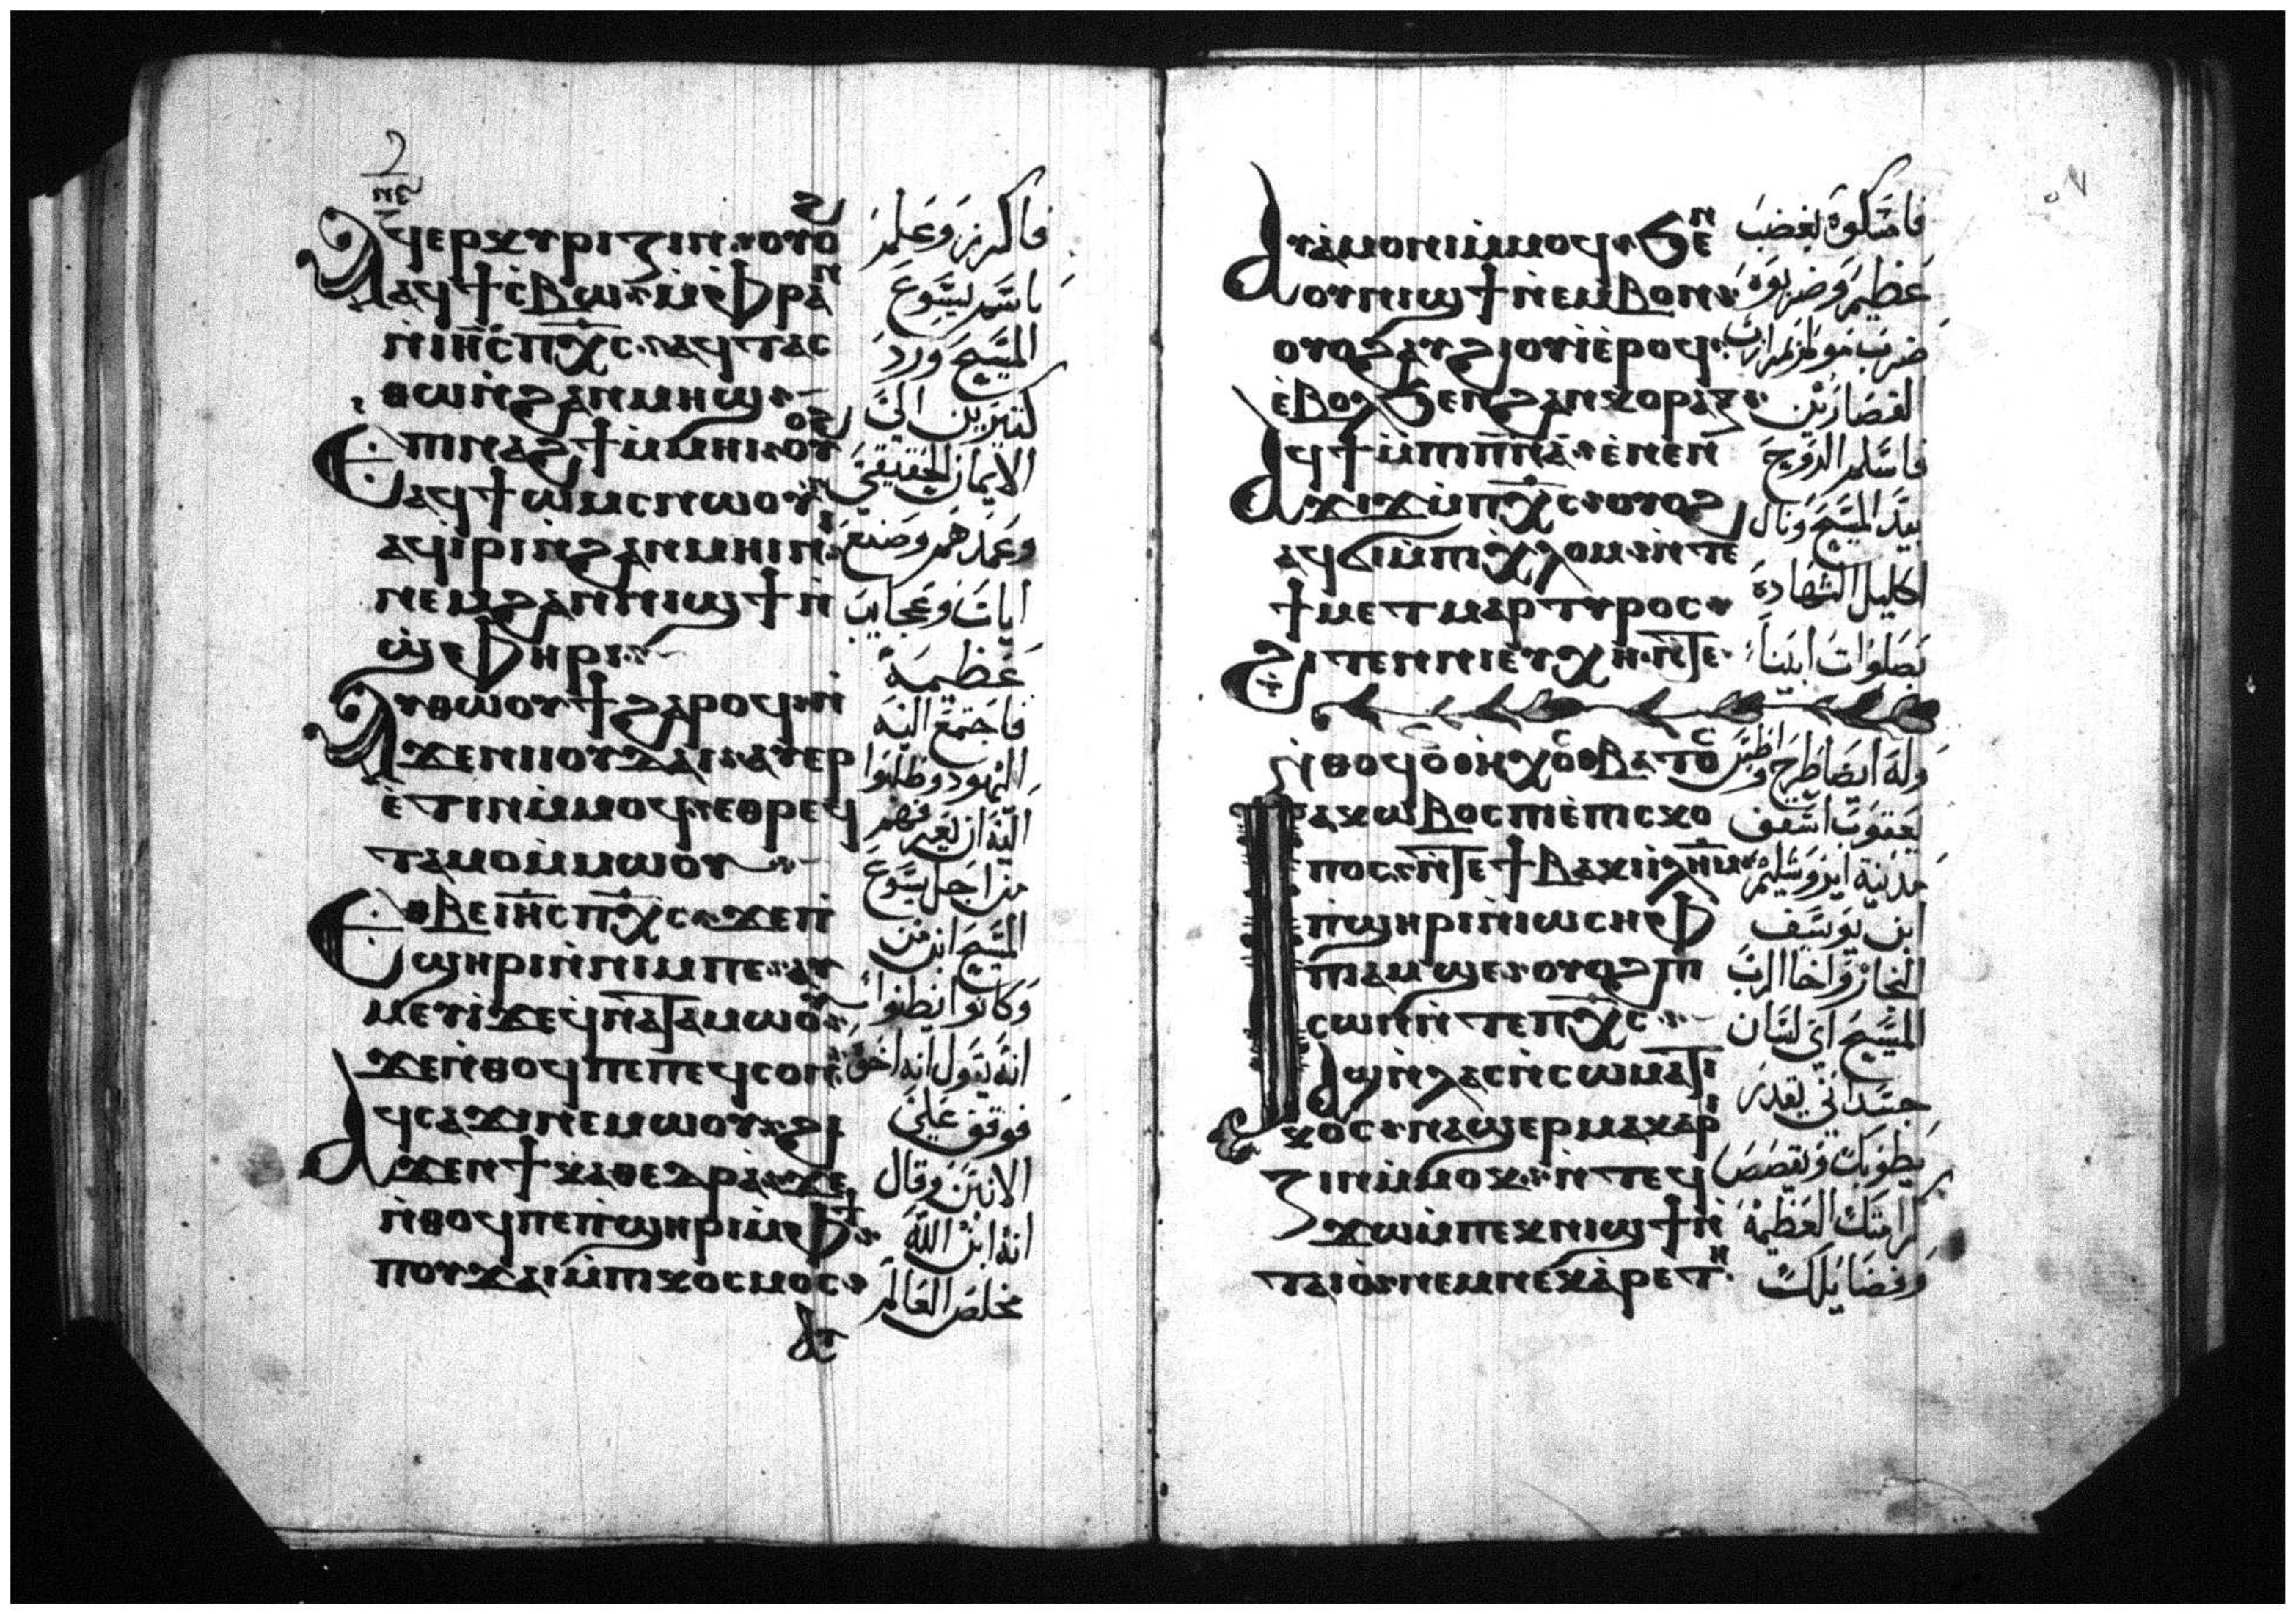 ⲁϥⲉⲣⲕⲩⲣⲓⲍⲓⲛ ⲟⲩⲟϩ
ⲁϥϯⲥⲃⲱ ϧⲉⲛ ⲫⲣⲁⲛ
ⲛⲓⲏⲥ ⲡⲭⲥ ⲁϥⲧⲁⲥ
ⲑⲱ ⲛϩⲁⲛⲙⲏϣ
ⲉⲡⲓⲛⲁϩϯ ⲙⲙⲏⲓ ⲟⲩⲟϩ
ⲁϥϯⲱⲙⲥ ⲛⲱⲟⲩ
ⲁϥⲓⲣⲓ ⲛϩⲁⲛⲙⲏⲓⲛⲓ
ⲛⲉⲙ ϩⲁⲛⲛⲓϣϯ ⲛ
ϣⲫⲏⲣⲓ
ⲁⲩⲑⲱⲟⲩϯ ϩⲁⲣⲟϥ ⲛⲓ
ϫⲉ ⲛⲓⲓⲟⲩⲇⲁⲓ ⲁⲩⲉⲣ
ⲉⲧⲓⲛ ⲙⲙⲟϥ ⲉⲑⲣⲉϥ
ⲧⲁⲙⲟ ⲙⲙⲱⲟⲩ
ⲉⲑⲃⲉ ⲓⲏⲥ ⲡⲭⲥ ϫⲉ ⲡⲓ
ϣⲏⲣⲓ ⲛⲛⲓⲙ ⲡⲉ ⲁⲩ
ⲙⲉⲩⲓ ϫⲉ ϥⲛⲁⲧⲁⲙⲱⲟⲩ
ϫⲉ ⲛⲑⲟϥ ⲡⲉ ⲡⲉϥⲥⲟⲛ
ⲁϥⲥⲁϫⲓ ⲛⲉⲙⲱⲟⲩ ϩⲓ
ϫⲉⲛ ϯⲕⲁⲑⲉⲇⲣⲁ ϫⲉ
ⲛⲑⲟϥ ⲡⲉ ⲡϣⲏⲣⲓ ⲙⲫϯ
ⲡⲟⲩϫⲁⲓ ⲙⲡⲓⲕⲟⲥⲙⲟⲥ
فاكرز وعلم
باسم يسوع
المسيح ورد
كتيرين الى
الايمان الحقيقي
وعمدهم وصنع
ايات وعجايب
عظيمة
فاجتمع اليه
اليهود وطلبوا
اليه ان يعرفهم
من اجل يسوع
المسيح ابن من
وكانوا يظنوا
انه يقول انه اخي
فوقف على
الانبن وقال
انه ابن الله
مخلص العالم
ⲁⲩⲁⲙⲟⲛⲓ ⲙⲙⲟϥ ϧⲉⲛ
ⲟⲩⲛⲓϣϯ ⲛⲉⲙⲃⲟⲛ
ⲟⲩⲟϩ ⲁⲩϩⲓⲟⲩⲓ ⲉⲣⲟϥ
ⲉⲃⲟⲗ ϧⲉⲛ ϩⲁⲛⲕⲟⲣⲁⲍ
ⲁϥϯ ⲙⲡⲓⲡⲛⲁ ⲉⲛⲉⲛ
ϫⲓϫ ⲙⲡⲭⲥ ⲟⲩⲟϩ
ⲁϥϭⲓ ⲙⲡⲓⲭⲗⲟⲙ ⲛⲧⲉ
ϯⲙⲉⲧⲙⲁⲣⲧⲩⲣⲟⲥ
ϩⲓⲧⲉⲛ ⲛⲓⲉⲩⲭⲏ ⲛⲧⲉ
ⲛⲑⲟϥ ⲟⲛ ⲏⲭⲟⲥ ⲃⲁⲧⲟⲥ
ⲓⲁⲕⲱⲃⲟⲥ ⲡⲓⲉⲡⲓⲥⲕⲟ
ⲡⲟⲥ ⲛⲧⲉ ϯⲃⲁⲕⲓ ⲓⲗⲏⲙ
ⲡϣⲏⲣⲓ ⲛⲓⲱⲥⲏⲫ
ⲡⲓⲁⲙϣⲉ ⲟⲩⲟϩ ⲡ
ⲥⲟⲛ ⲛⲧⲉ ⲡⲭⲥ
ⲁϣ ⲛⲗⲁⲥ ⲛⲥⲱⲙⲁⲧⲓ
ⲕⲟⲥ ⲛⲁϣⲉⲣⲙⲁⲕⲁⲣⲓ
ⲍⲓⲛ ⲙⲙⲟⲕ ⲛⲧⲉϥ
ϫⲱ ⲙⲡⲉⲕⲛⲓϣϯ ⲛ
ⲧⲁⲓⲟ ⲛⲉⲙ ⲛⲉⲕⲁⲣⲉⲧⲏ
فامسكوه بغضب
عظيم وضربوه
ضرب مولم بمرازب
القصارين
فاسلم الروح
بيد المسيح ونال
اكليل الشهادة
بصلوات ابينا
وله ايضا طرح واطس
يعقوب اسقف
مدينة ايروشليم
ابن يوسف
النجار واخا الرب
المسيح اي لسان
جسداني يقدر
يطوبك ويقصص
كرامتك العظيمة
وفضايلك